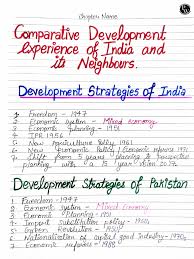 Chapter Name
Comparative Development
Experience of India and
its Neighbours.
Development Strategies of India
1 Freedom - 1947
2 Economic system - Mixed economy
3 Economic planning - 1951
4 IPR 1956
5 New Agricultural Policy 1961
6 New Economic Policy / Economic reforms 1991
7 Shift from 5 years planning to perspective
planning with a 15 year vision 2017
Development Strategies of Pakistan
1 Freedom - 1947
2 Economic system - Mixed Economy
3 Economic Planning - 1951
4 Import Substitution policy - 1960s
5 Green Revolution
6 Nationalisation of capital good industry - 1970s
7 Economic reforms - 1988